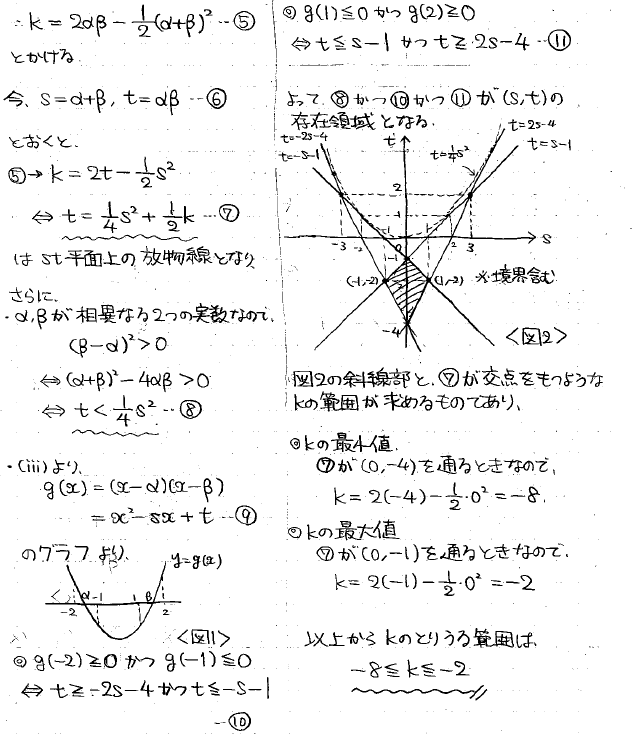 ∴ k = 2αβ − 1/2(α+β)² … ⑤
とかける
今、s=α+β, t=αβ … ⑥
とおくと、
⑤→ k = 2t − 1/2 s²
⇔ t = 1/4 s² + 1/2 k … ⑦
は st平面上の放物線となり
さらに、
・α,βが相異なる2つの実数なので、
(β−α)² > 0
⇔ (α+β)² − 4αβ > 0
⇔ t < 1/4 s² … ⑧
・(iii)より、
g(x) = (x−α)(x−β)
= x² − sx + t … ⑨
のグラフより、
y=g(x)
-2 α -1 1 β 2
<図1>
◎ g(-2)≧0 かつ g(-1)≦0
⇔ t≧-2s-4 かつ t≦-s-1
… ⑩
◎ g(1)≦0 かつ g(2)≧0
⇔ t≦s-1 かつ t≧2s-4 … ⑪
よって、⑧かつ⑩かつ⑪が(s,t)の
存在領域となる。
t=-2s-4
t=-s-1
t
t=1/4 s²
t=2s-4
t=s-1
2
1
-3 -2 -1 0 1 2 3 s
-1
(-1,-2)
-2
(1,-2)
※境界含む
-4
<図2>
図2の斜線部と、⑦が交点をもつような
kの範囲が求めるものであり、
◎kの最小値
⑦が(0,-4)を通るときなので、
k = 2(-4) − 1/2・0² = -8
◎kの最大値
⑦が(0,-1)を通るときなので、
k = 2(-1) − 1/2・0² = -2
以上からkのとりうる範囲は、
-8 ≦ k ≦ -2